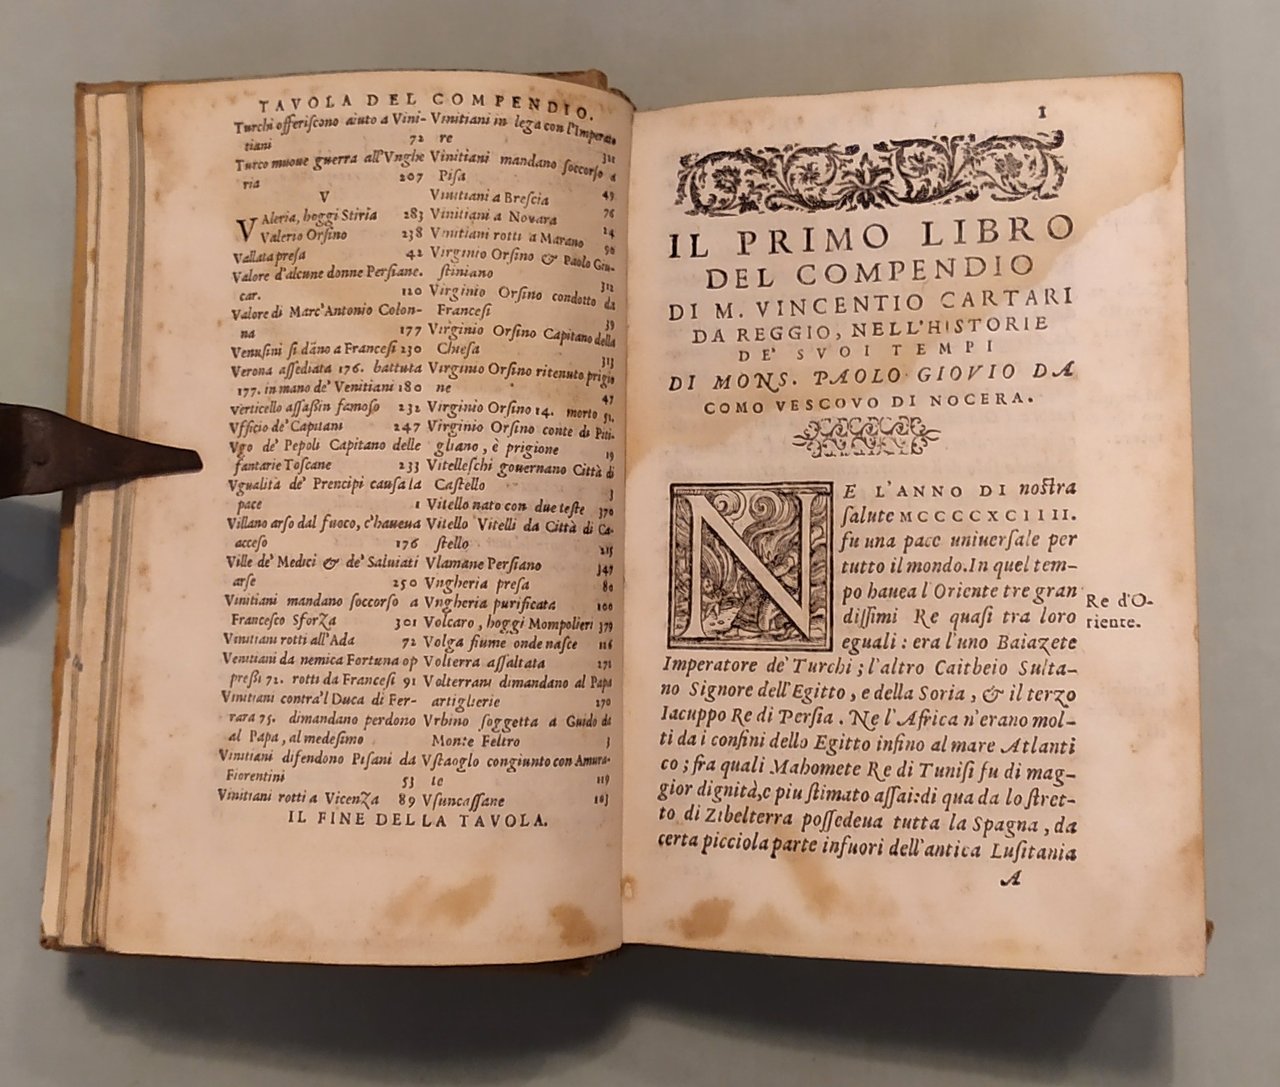 TAVOLA DEL COMPENDIO.
Turchi offeriscono aiuto a Vini-
tiani 72
Turco muoue guerra all'Vnghe
ria 207
V
VAleria, hoggi Stiria 283
Valerio Orsino 238
Vallata presa 42
Valore d'alcune donne Persiane.
car. 120
Valore di Marc'Antonio Colon-
na 177
Venusini si dāno a Francesi 230
Verona assediata 176. battuta
177. in mano de' Venitiani 180
Verticello assassin famoso 232
Vfficio de' Capitani 247
Vgo de' Pepoli Capitano delle
fantarie Toscane 233
Vgualità de' Prencipi causa la
pace 1
Villano arso dal fuoco, c'haueua
acceso 176
Ville de' Medici & de' Saluiati
arse 250
Vinitiani mandano soccorso a
Francesco Sforza 301
Vinitiani rotti all'Ada 72
Venitiani da nemica Fortuna op
pressi 72. rotti da Francesi 91
Vinitiani contra'l Duca di Fer-
rara 75. dimandano perdono
al Papa, al medesimo
Vinitiani difendono Pisani da
Fiorentini 53
Vinitiani rotti a Vicenza 89
Vinitiani in lega con l'Imperato
re 311
Vinitiani mandano soccorso a
Pisa 49
Vinitiani a Brescia 76
Vinitiani a Novara 24
Vinitiani rotti a Marano 90
Virginio Orsino & Paolo Giu-
stiniano 312
Virginio Orsino condotto da
Francesi 39
Virginio Orsino Capitano della
Chiesa 313
Virginio Orsino ritenuto prigio
ne 47
Virginio Orsino 14. morto 51.
Virginio Orsino conte di Piti-
gliano, è prigione 19
Vitelleschi gouernano Città di
Castello 3
Vitello nato con due teste 370
Vitello Vitelli da Città di Ca-
stello 215
Vlamane Persiano 347
Vngheria presa 80
Vngheria purificata 100
Volcaro, hoggi Mompolieri 379
Volga fiume onde nasce 116
Volterra assaltata 271
Volterrani dimandano al Papa
artiglierie 270
Vrbino soggetta a Guido di
Monte Feltro 3
Vstaoglo congiunto con Amura-
te 119
Vsuncassane 103
IL FINE DELLA TAVOLA.
1
IL PRIMO LIBRO
DEL COMPENDIO
DI M. VINCENTIO CARTARI
DA REGGIO, NELL'HISTORIE
DE' SVOI TEMPI
DI MONS. PAOLO GIOVIO DA
COMO VESCOVO DI NOCERA.
NE L'ANNO DI nostra
salute MCCCCXCIIII.
fu una pace uniuersale per
tutto il mondo. In quel tem-
po hauea l'Oriente tre gran
dissimi Re quasi tra loro
eguali: era l'uno Baiazete
Imperatore de' Turchi; l'altro Caitbeio Sulta-
no Signore dell'Egitto, e della Soria, & il terzo
Iacuppo Re di Persia. Ne l'Africa n'erano mol-
ti da i confini dello Egitto infino al mare Atlanti
co; fra quali Mahomete Re di Tunisi fu di mag-
gior dignità, e piu stimato assai: di qua da lo stret-
to di Zibelterra possedeua tutta la Spagna, da
certa picciola parte infuori dell'antica Lusitania
Re d'O-
riente.
A